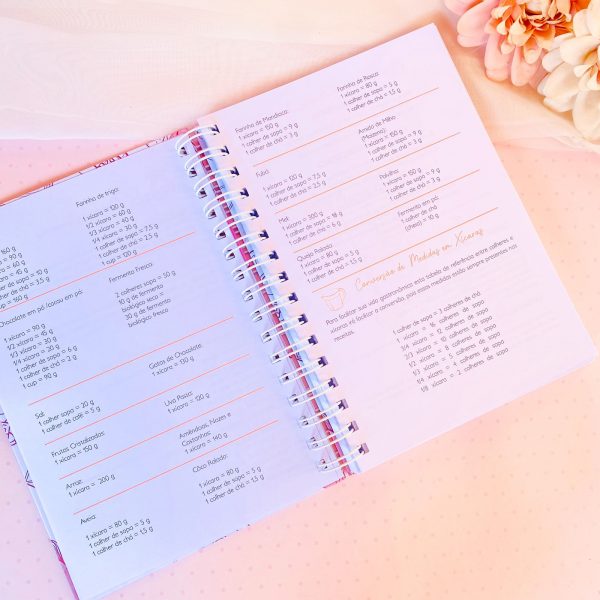 Farinha de trigo:
1 xícara = 120 g
1/2 xícara = 60 g
1/3 xícara = 40 g
1/4 xícara = 30 g
1 colher de sopa = 7,5 g
1 colher de chá = 2,5 g
1 cup = 120 g
160 g
= 90 g
= 60 g
= 45 g
de sopa = 10 g
de chá = 3,5 g
= 160 g
Chocolate em pó (cacau em pó):
1 xícara = 90 g
1/2 xícara = 45 g
1/3 xícara = 30 g
1/4 xícara = 20 g
1 colher de sopa = 6 g
1 colher de chá = 2 g
1 cup = 90 g
Fermento Fresco:
2 colheres sopa = 30 g
10 g de fermento
biológico seco =
30 g de fermento
biológico fresco
Gotas de Chocolate:
1 xícara = 150 g
Sal:
1 colher sopa = 20 g
1 colher de café = 5 g
Uva Passa:
1 xícara = 120 g
Frutas Cristalizadas:
1 xícara = 150 g
Amêndoas, Nozes e
Castanhas:
1 xícara = 140 g
Arroz:
1 xícara = 200 g
Côco Ralado:
1 xícara = 80 g
1 colher de sopa = 5 g
1 colher de chá = 1,5 g
Aveia:
1 xícara = 80 g
1 colher de sopa = 5 g
1 colher de chá = 1,5 g
Farinha de Mandioca:
1 xícara = 150 g
1 colher de sopa = 9 g
1 colher de chá = 3 g
Farinha de Rosca:
1 xícara = 80 g
1 colher de sopa = 5 g
1 colher de chá = 1,5 g
Fubá:
1 xícara = 120 g
1 colher de sopa = 7,5 g
1 colher de chá = 2,5 g
Amido de Milho
(Maizena):
1 xícara = 150 g
1 colher de sopa = 9 g
1 colher de chá = 3 g
Mel:
1 xícara = 300 g
1 colher de sopa = 18 g
1 colher de chá = 6 g
Polvilho:
1 xícara = 150 g
1 colher de sopa = 9 g
1 colher de chá = 3 g
Queijo Ralado:
1 xícara = 80 g
1 colher de sopa = 5 g
1 colher de chá = 1,5 g
Fermento em pó:
1 colher de chá
(cheia) = 10 g
Conversão de Medidas em Xícaras
Para facilitar sua vida gastronômica esta tabela de referência entre colheres e
xícaras irá facilitar a conversão, pois essas medidas estão sempre presentes nas
receitas.
1 colher de sopa = 3 colheres de chá
1 xícara = 16 colheres de sopa
3/4 xícara = 12 colheres de sopa
2/3 xícara = 10 colheres de sopa
1/2 xícara = 8 colheres de sopa
1/3 xícara = 5 colheres de sopa
1/4 xícara = 4 colheres de sopa
1/8 xícara = 2 colheres de sopa